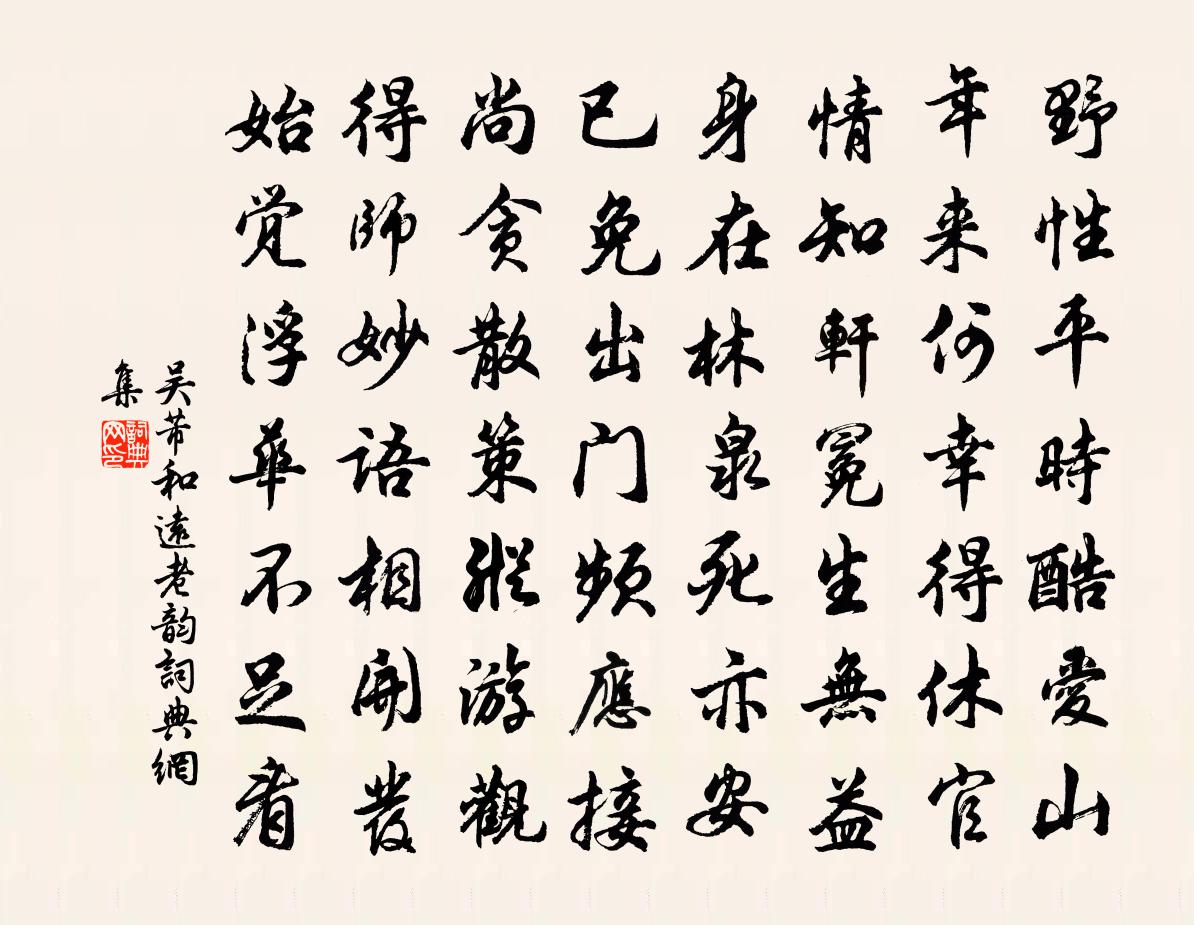 野性平時酷愛山
年来何幸得休官
情知軒冕生無益
身在林泉死亦安
已免出門頻應接
尚貪散策縱游觀
得師妙語相開發
始覚浮華不足看
吴芾和遠老韵詞典網
集
詞典
网印